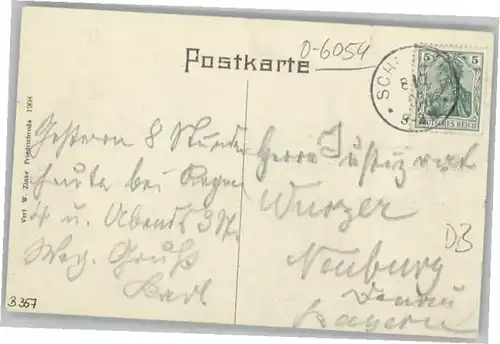 Postkarte
0-6054
SCH
5 5
DEUTSCHES REICH
Verl. W. Zinke Friedrichroda 1908
Gestern 8 Stunden
heute bei Regen
4 u. Abends 3 St.
Weg. Gruß
Karl
Herrn Justizrat
Wurzer
Neuburg
Donau
Bayern
DB
B 357